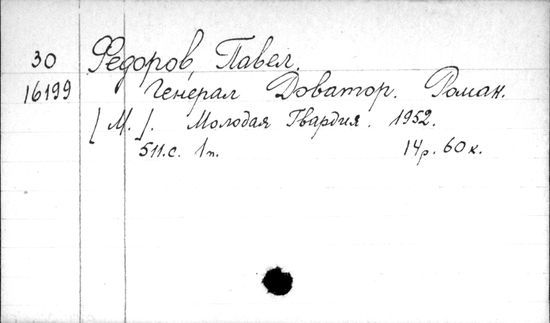 30 Федоров, Павел.
16199 Генерал Доватор. Роман.
[М.]. Молодая Гвардия. 1952.
511.с. 1п. 14р. 60к.